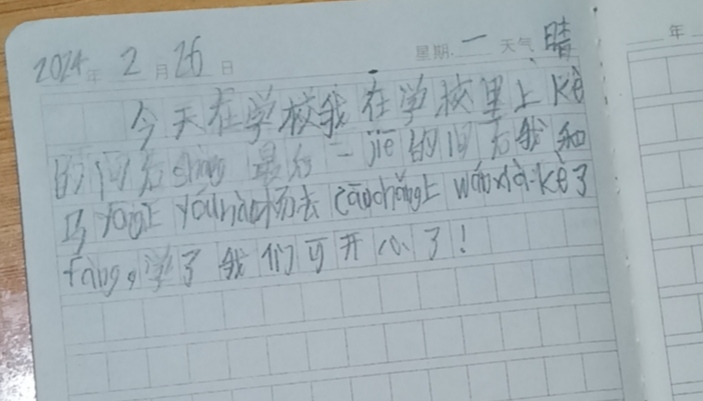 2024年 2月 26日 星期.一 天气.晴 年
今天在学校我在学校里上kè
的间右shàng最后一jié的间右我和
马yǒng上 去cāochǎng上 wánxià.kè了
fàng。学了我们可开心了!